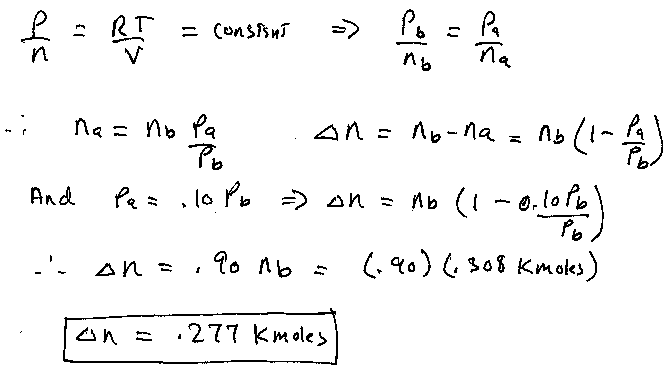 P/n = RT/V = constant => Pb/nb = Pa/na
∴ na = nb Pa/Pb   Δn = nb-na = nb (1- Pa/Pb)
And Pa = .10 Pb => Δn = nb (1 - 0.10Pb/Pb)
∴ Δn = .90 nb = (.90) (.308 Kmoles)
Δn = .277 Kmoles